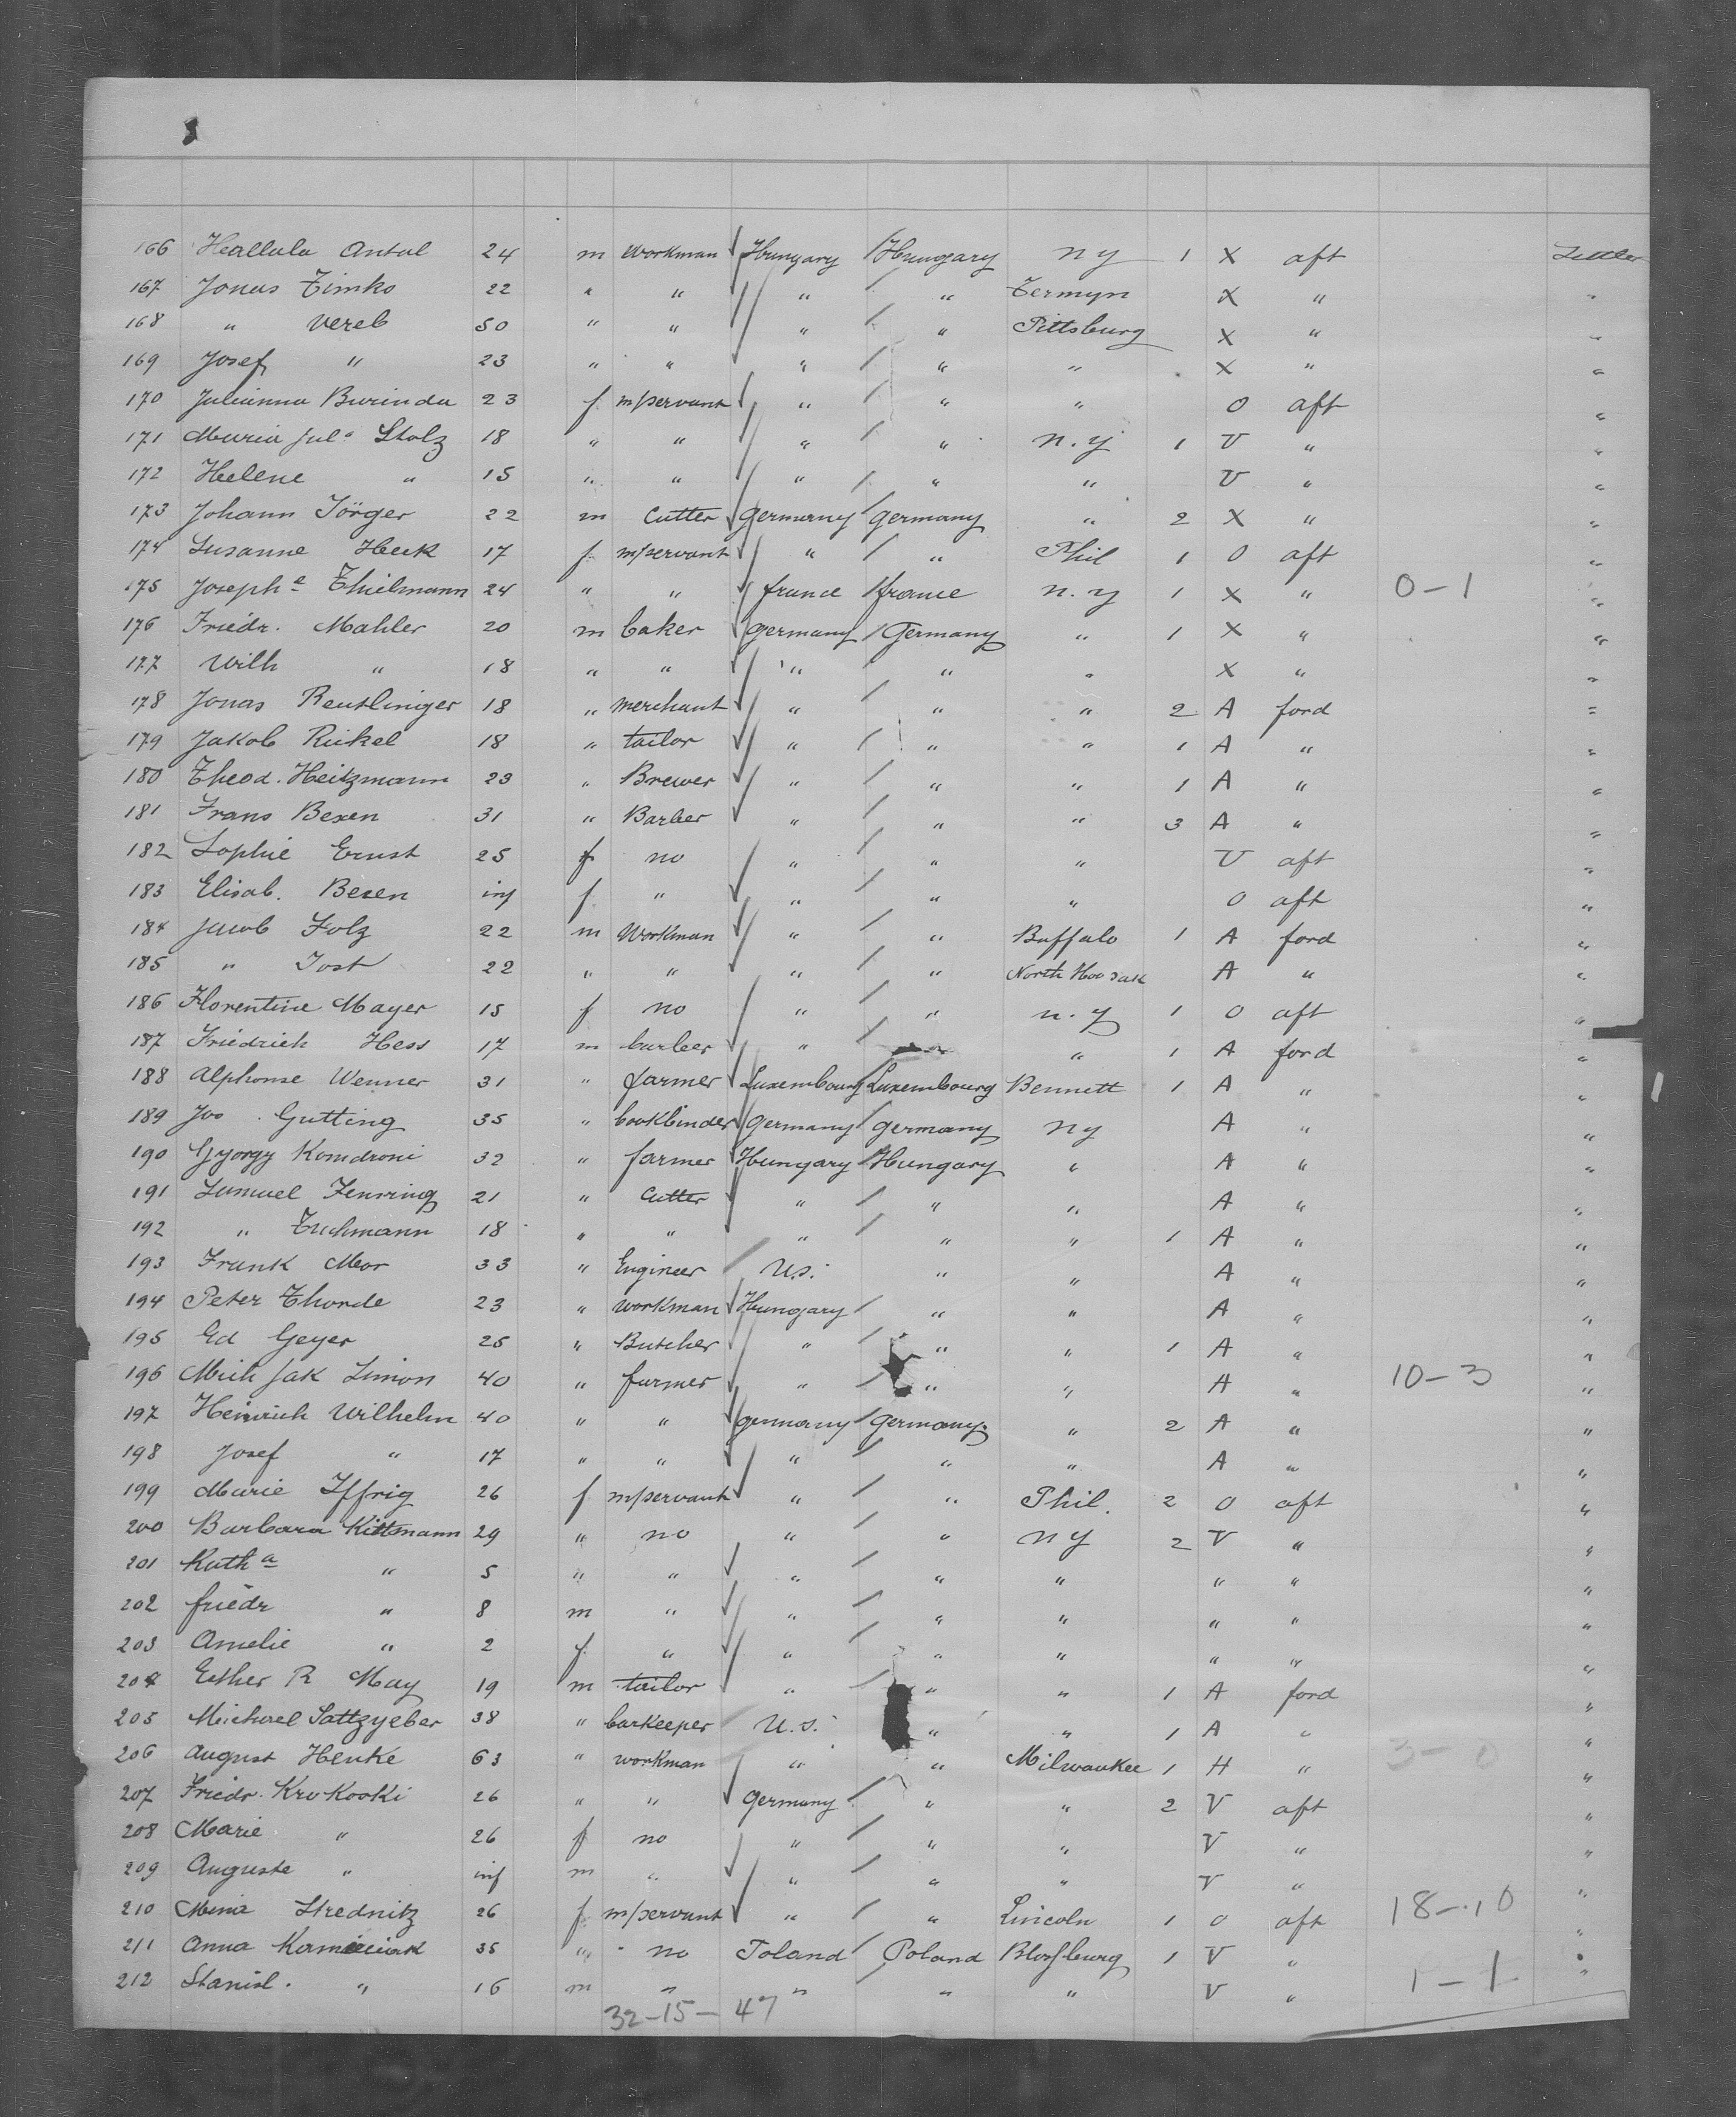 3
166 Hallula Antal 24 m workman Hungary Hungary ny 1 X aft Settler
167 Jonas Timko 22 " " " " Jermyn X " "
168 " Vereb 50 " " " " Pittsburg X " "
169 Josef " 23 " " " " " X " "
170 Julianna Burinda 23 f m/servant " " " O aft "
171 Maria Jula Stolz 18 " " " " n.y 1 V " "
172 Helene " 15 " " " " " V " "
173 Johann Jörger 22 m Cutter germany germany " 2 X " "
174 Susanne Heck 17 f m/servant " " Phil 1 O aft "
175 Josephe Thielmann 24 " " france france n.y 1 X " 0-1 "
176 Friedr. Mahler 20 m baker germany Germany " 1 X " "
177 Wilh " 18 " " " " " X " "
178 Jonas Reutlinger 18 " merchant " " " 2 A ford "
179 Jakob Rickel 18 " tailor " " " 1 A " "
180 Theod. Heitzmann 23 " Brewer " " " 1 A " "
181 Frans Bexen 31 " Barber " " " 3 A " "
182 Sophie Ernst 25 f no " " " V aft "
183 Elisab. Bexen inf f " " " " O aft "
184 Jacob Folz 22 m Workman " " Buffalo 1 A ford "
185 " Jost 22 " " " " North Hoosak A " "
186 Florentine Mayer 15 f no " " n.y 1 O aft "
187 Friedrich Hess 17 m barber " " " 1 A ford "
188 Alphonse Wenner 31 " farmer Luxembourg Luxembourg Bennett 1 A " "
189 Jos. Gutting 35 " bookbinder Germany germany ny A " "
190 Gyorgy Komdroni 32 " farmer Hungary Hungary " A " "
191 Samuel 21 " Cutter " " " A " "
192 " Tuchmann 18 " " " " " 1 A " "
193 Frank Mor 33 " Engineer U.S. " " A " "
194 Peter Thorde 23 " workman Hungary " " A " "
195 Ed Geyer 25 " Butcher " " " 1 A " "
196 Mich Jak Simon 40 " farmer " " " A " 10-3 "
197 Heinrich Wilhelm 40 " " germany Germany " 2 A " "
198 Josef " 17 " " " " " A " "
199 Marie Iffrig 26 f m/servant " " Phil. 2 O aft "
200 Barbara Kittmann 29 " no " " ny 2 V " "
201 Katha " 5 " " " " " " " "
202 friedr " 8 m " " " " " " "
203 Amelie " 2 f " " " " " " "
204 Esther R May 19 m tailor " " " 1 A ford "
205 Michael Sattzyeber 38 " barkeeper U.S. " " 1 A " "
206 August Henke 63 " workman " " Milwaukee 1 H " 3-0 "
207 Friedr. Krokoski 26 " " Germany " " 2 V aft "
208 Marie " 26 f no " " " V " "
209 Auguste " inf m " " " " V " "
210 Mina Strednitz 26 f m/servant " " Lincoln 1 O aft 18-10 "
211 Anna 35 " no Poland Poland Blossburg 1 V " "
212 Stanisl. " 16 m " " " " V " 1-1 "
32-15-47